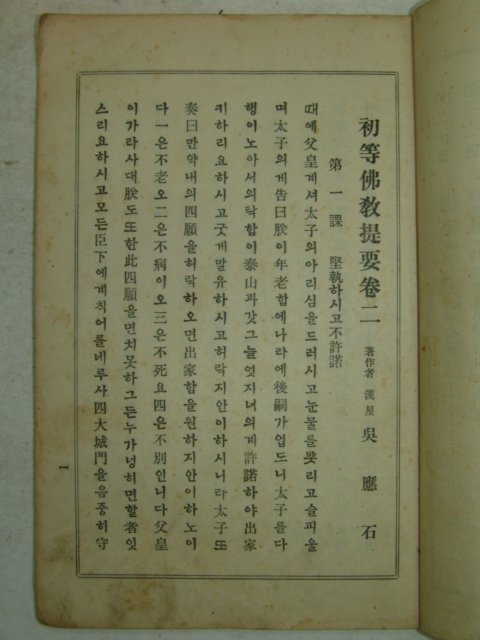 初等佛敎提要卷二
著作者 漢星 吳應石
第一課 堅執하시고不許諾
때에父皇게셔太子의아리심을드러시고눈물을뿌리고슬피울
며太子의게告曰朕이年老함에나라에後嗣가업드니太子를다
행이노아서의탁함이泰山과갓그늘엇지녀의게許諾하야出家
키하리요하시고굿게말유하시고허락지안이하시니라太子또
奏曰만약내의四願을허락하오면出家함을원하지안이하노이
다一은不老오二은不病이오三은不死요四은不別인니다父皇
이가라사대朕도또한此四願을면치못하그든누가넝히面할者잇
스리요하시고모든臣下에게칙어를네루사四大城門을음중히守
一